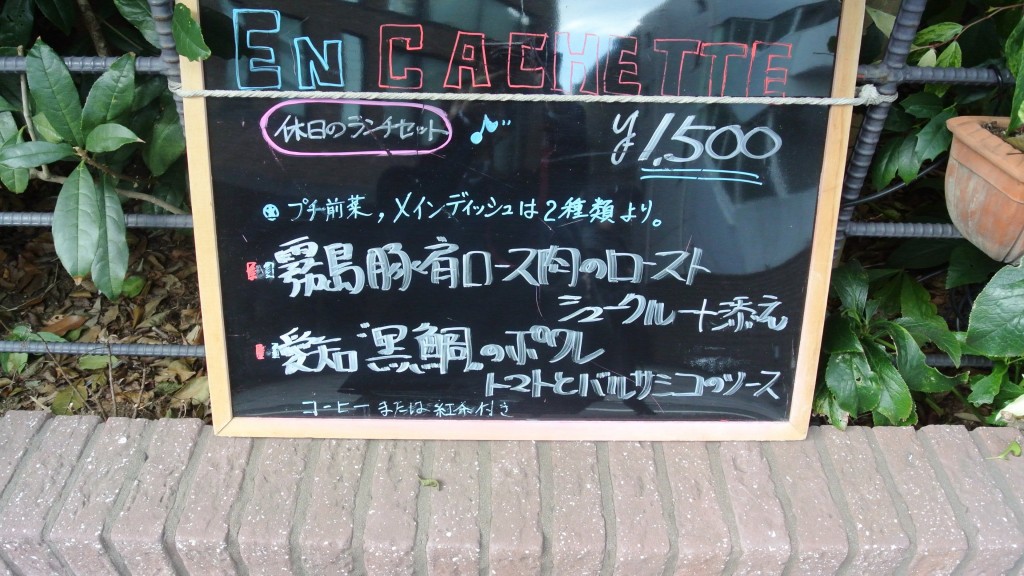 EN CACHETTE
休日のランチセット ♪ ¥1,500
プチ前菜,メインディッシュは2種類より。
霧島豚肩ロース肉のロースト
シュークルート添え
愛知 黒鯛のポワル
トマトとバルサミコのソース
コーヒーまたは紅茶付き